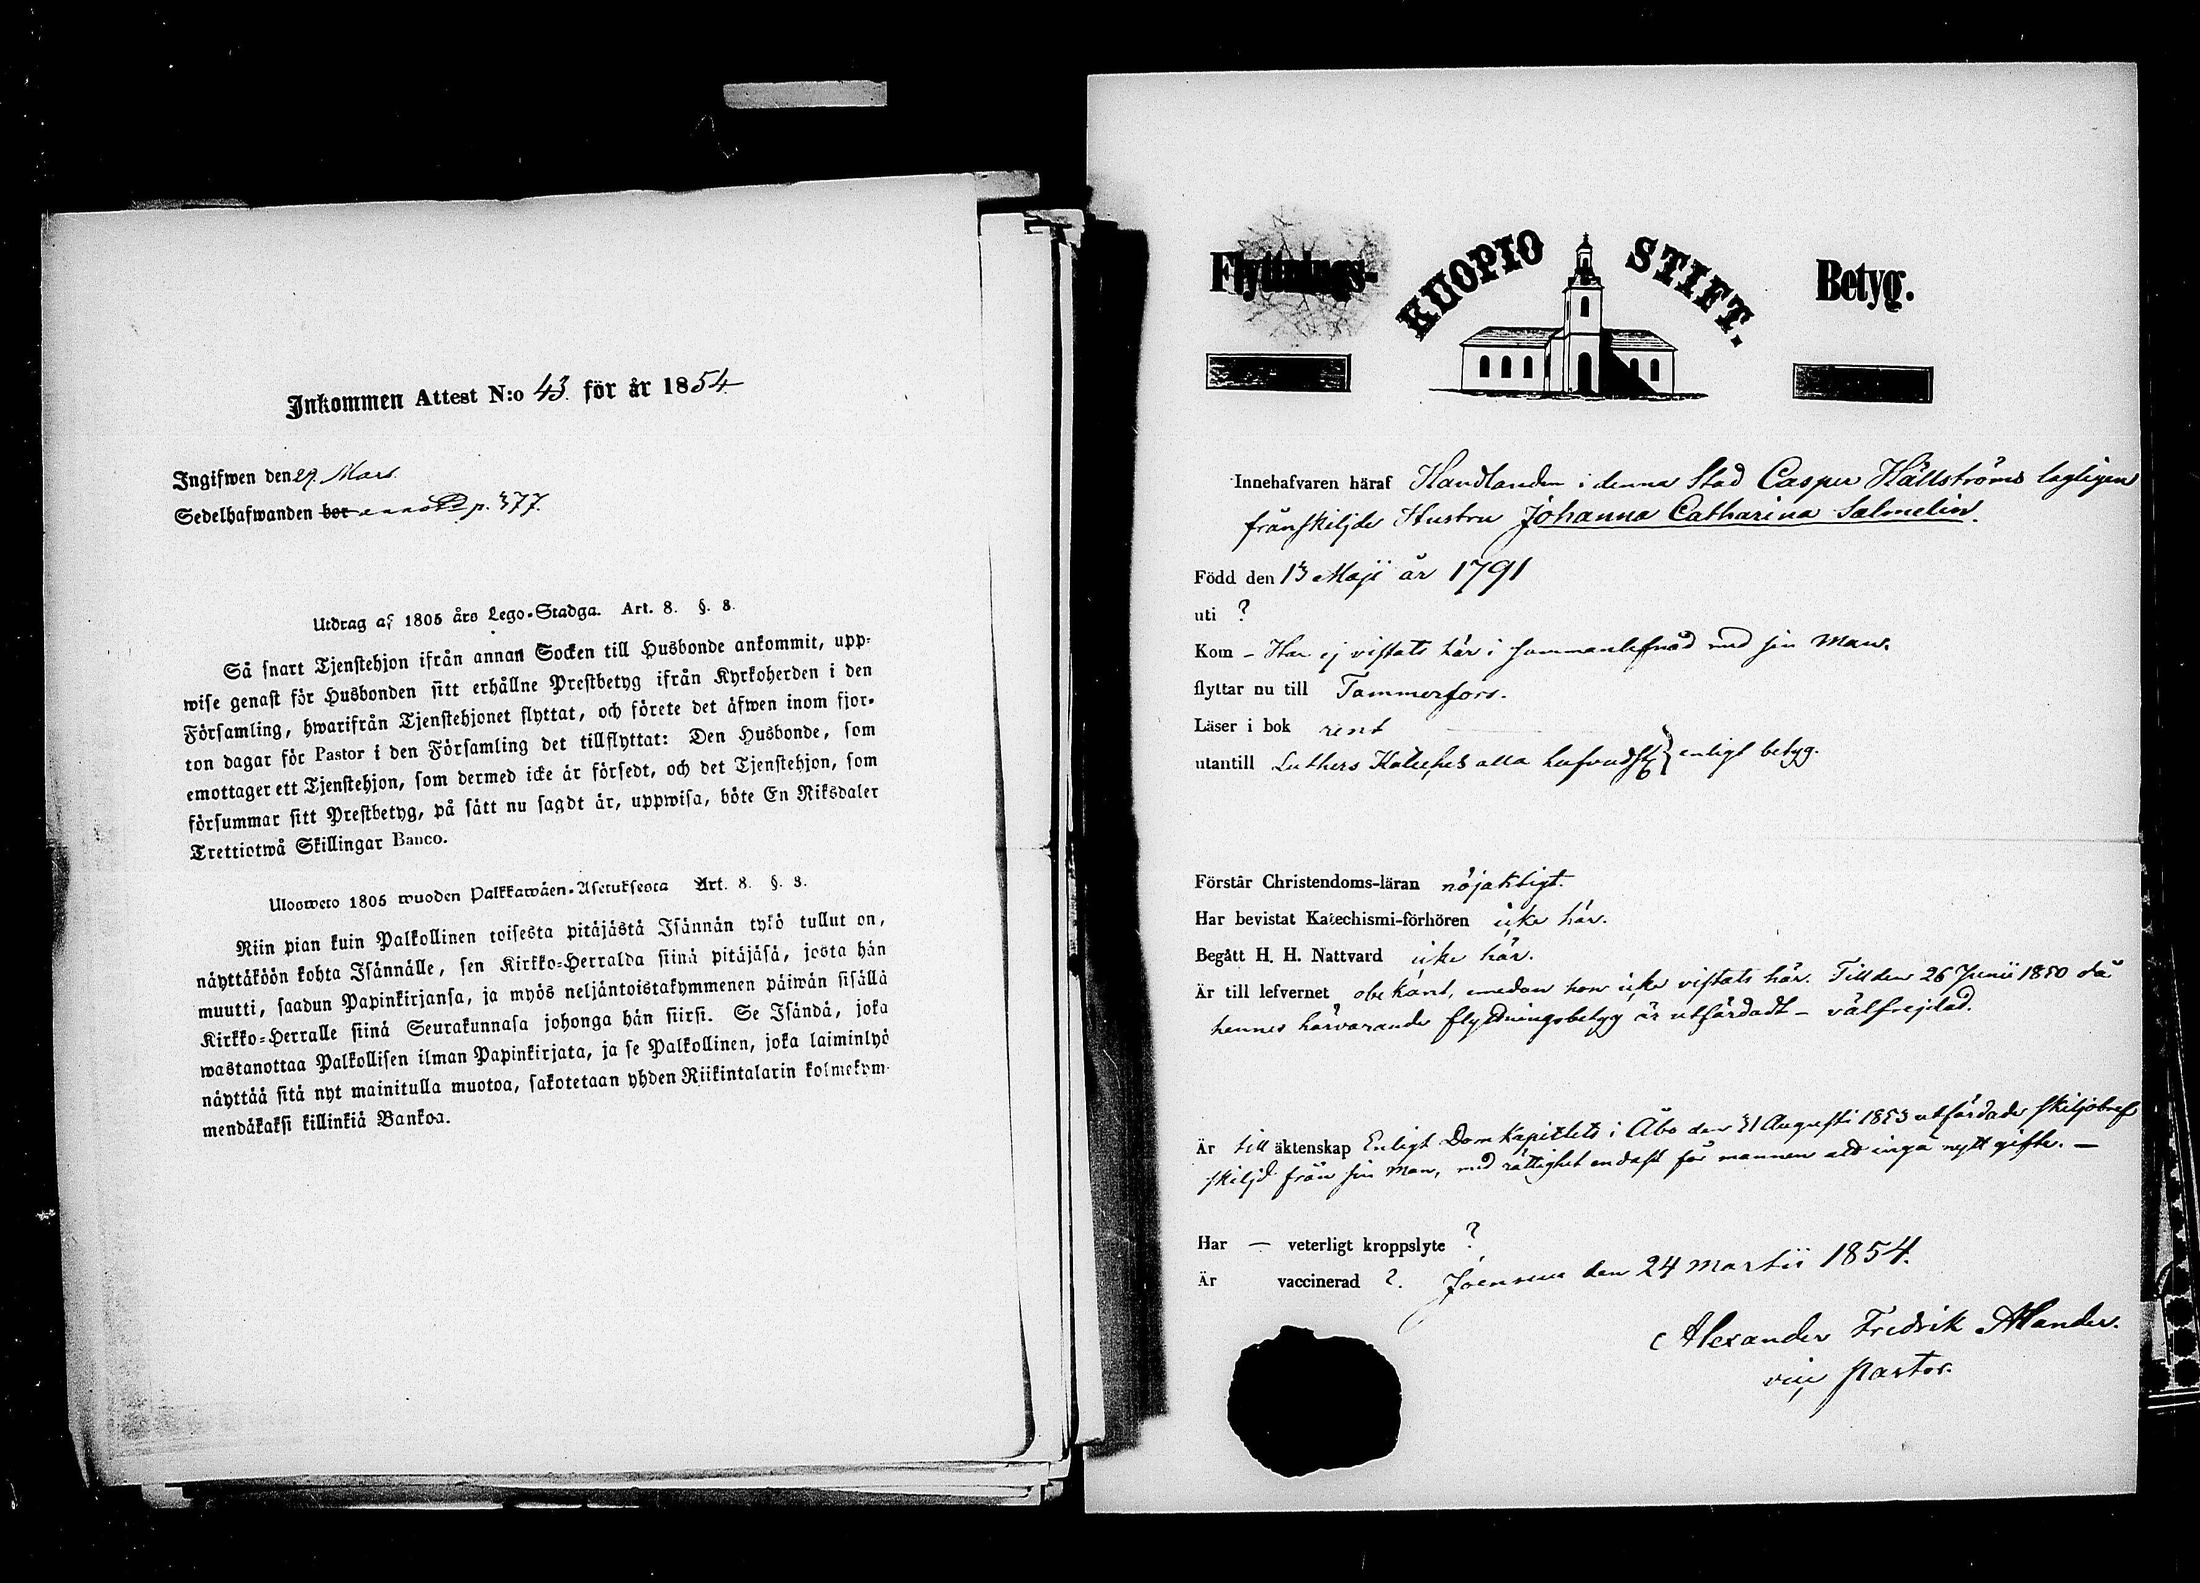 Inkommen Attest N:o 43. för år 1854.
Ingifwen den 29. Mars.
Sedelhafwanden bor p. 377.
Utdrag af 1805 års Lego-Stadga. Art. 8. §. 3.
Så snart Tjenstehjon ifrån annan Socken till Husbonde ankommit, upp-
wise genast för Husbonden sitt erhållne Prestbetyg ifrån Kyrkoherden i den
Församling, hwarifrån Tjenstehjonet flyttat, och förete det åfwen inom fjor-
ton dagar för Pastor i den Församling det tillflyttat: Den Husbonde, som
emottager ett Tjenstehjon, som dermed icke är försedt, och det Tjenstehjon, som
försummar sitt Prestbetyg, på sått nu sagdt år, uppwisa, böte En Riksdaler
Trettiotwå Skillingar Banco.
Ulosweto 1805 wuoden Palkkawåen-Asetuksesta Art. 8. §. 3.
Niin pian kuin Palkollinen toisesta pitäjästä Isännän tykö tullut on,
näyttäköön kohta Isännälle, sen Kirkko-Herralda siinä pitäjäsä, josta hän
muutti, saadun Papinkirjansa, ja myös neljäntoistakymmenen päiwän sisällä
Kirkko-Herralle siinä Seurakunnasa johonga hän siirsi. Se Isändä, joka
wastanottaa Palkollisen ilman Papinkirjata, ja se Palkollinen, joka laiminlyö
näyttää sitä nyt mainitulla muotoa, sakotetaan yhden Riikintalarin kolmekym-
mendäkaksi killinkiä Bankoa.
Flyttnings- KUOPIO STIFT. Betyg.
Innehafvaren häraf Handlanden i denna Stad Casper Hällströms lagligen
frånskiljde Hustru Johanna Catharina Salmelin.
Född den 13 Maji år 1791
uti ?
Kom - Har ej vistats här i sammanlefnad med sin Man.
flyttar nu till Tammerfors.
Läser i bok rent
utantill Luthers Kateches alla hufvudst } enligt betyg.
Förstår Christendoms-läran nöjaktigt.
Har bevistat Katechismi-förhören icke här.
Begått H. H. Nattvard icke här.
Är till lefvernet obekant, emedan hon icke vistats här. Till den 26 Junii 1850 då
hennes härvarande flyttningsbetyg är utfärdadt - välfrejdad.
Är till äktenskap Enligt Dom Kapitlets i Åbo den 31 Augusti 1853 utfärdade skiljobref
skiljd från sin Man, med rättighet endast för mannen att ingå nytt gifte. -
Har - veterligt kroppslyte ?
Är vaccinerad ?. Joensuu den 24 Martii 1854.
Alexander Fredrik Alander.
vice Pastor.